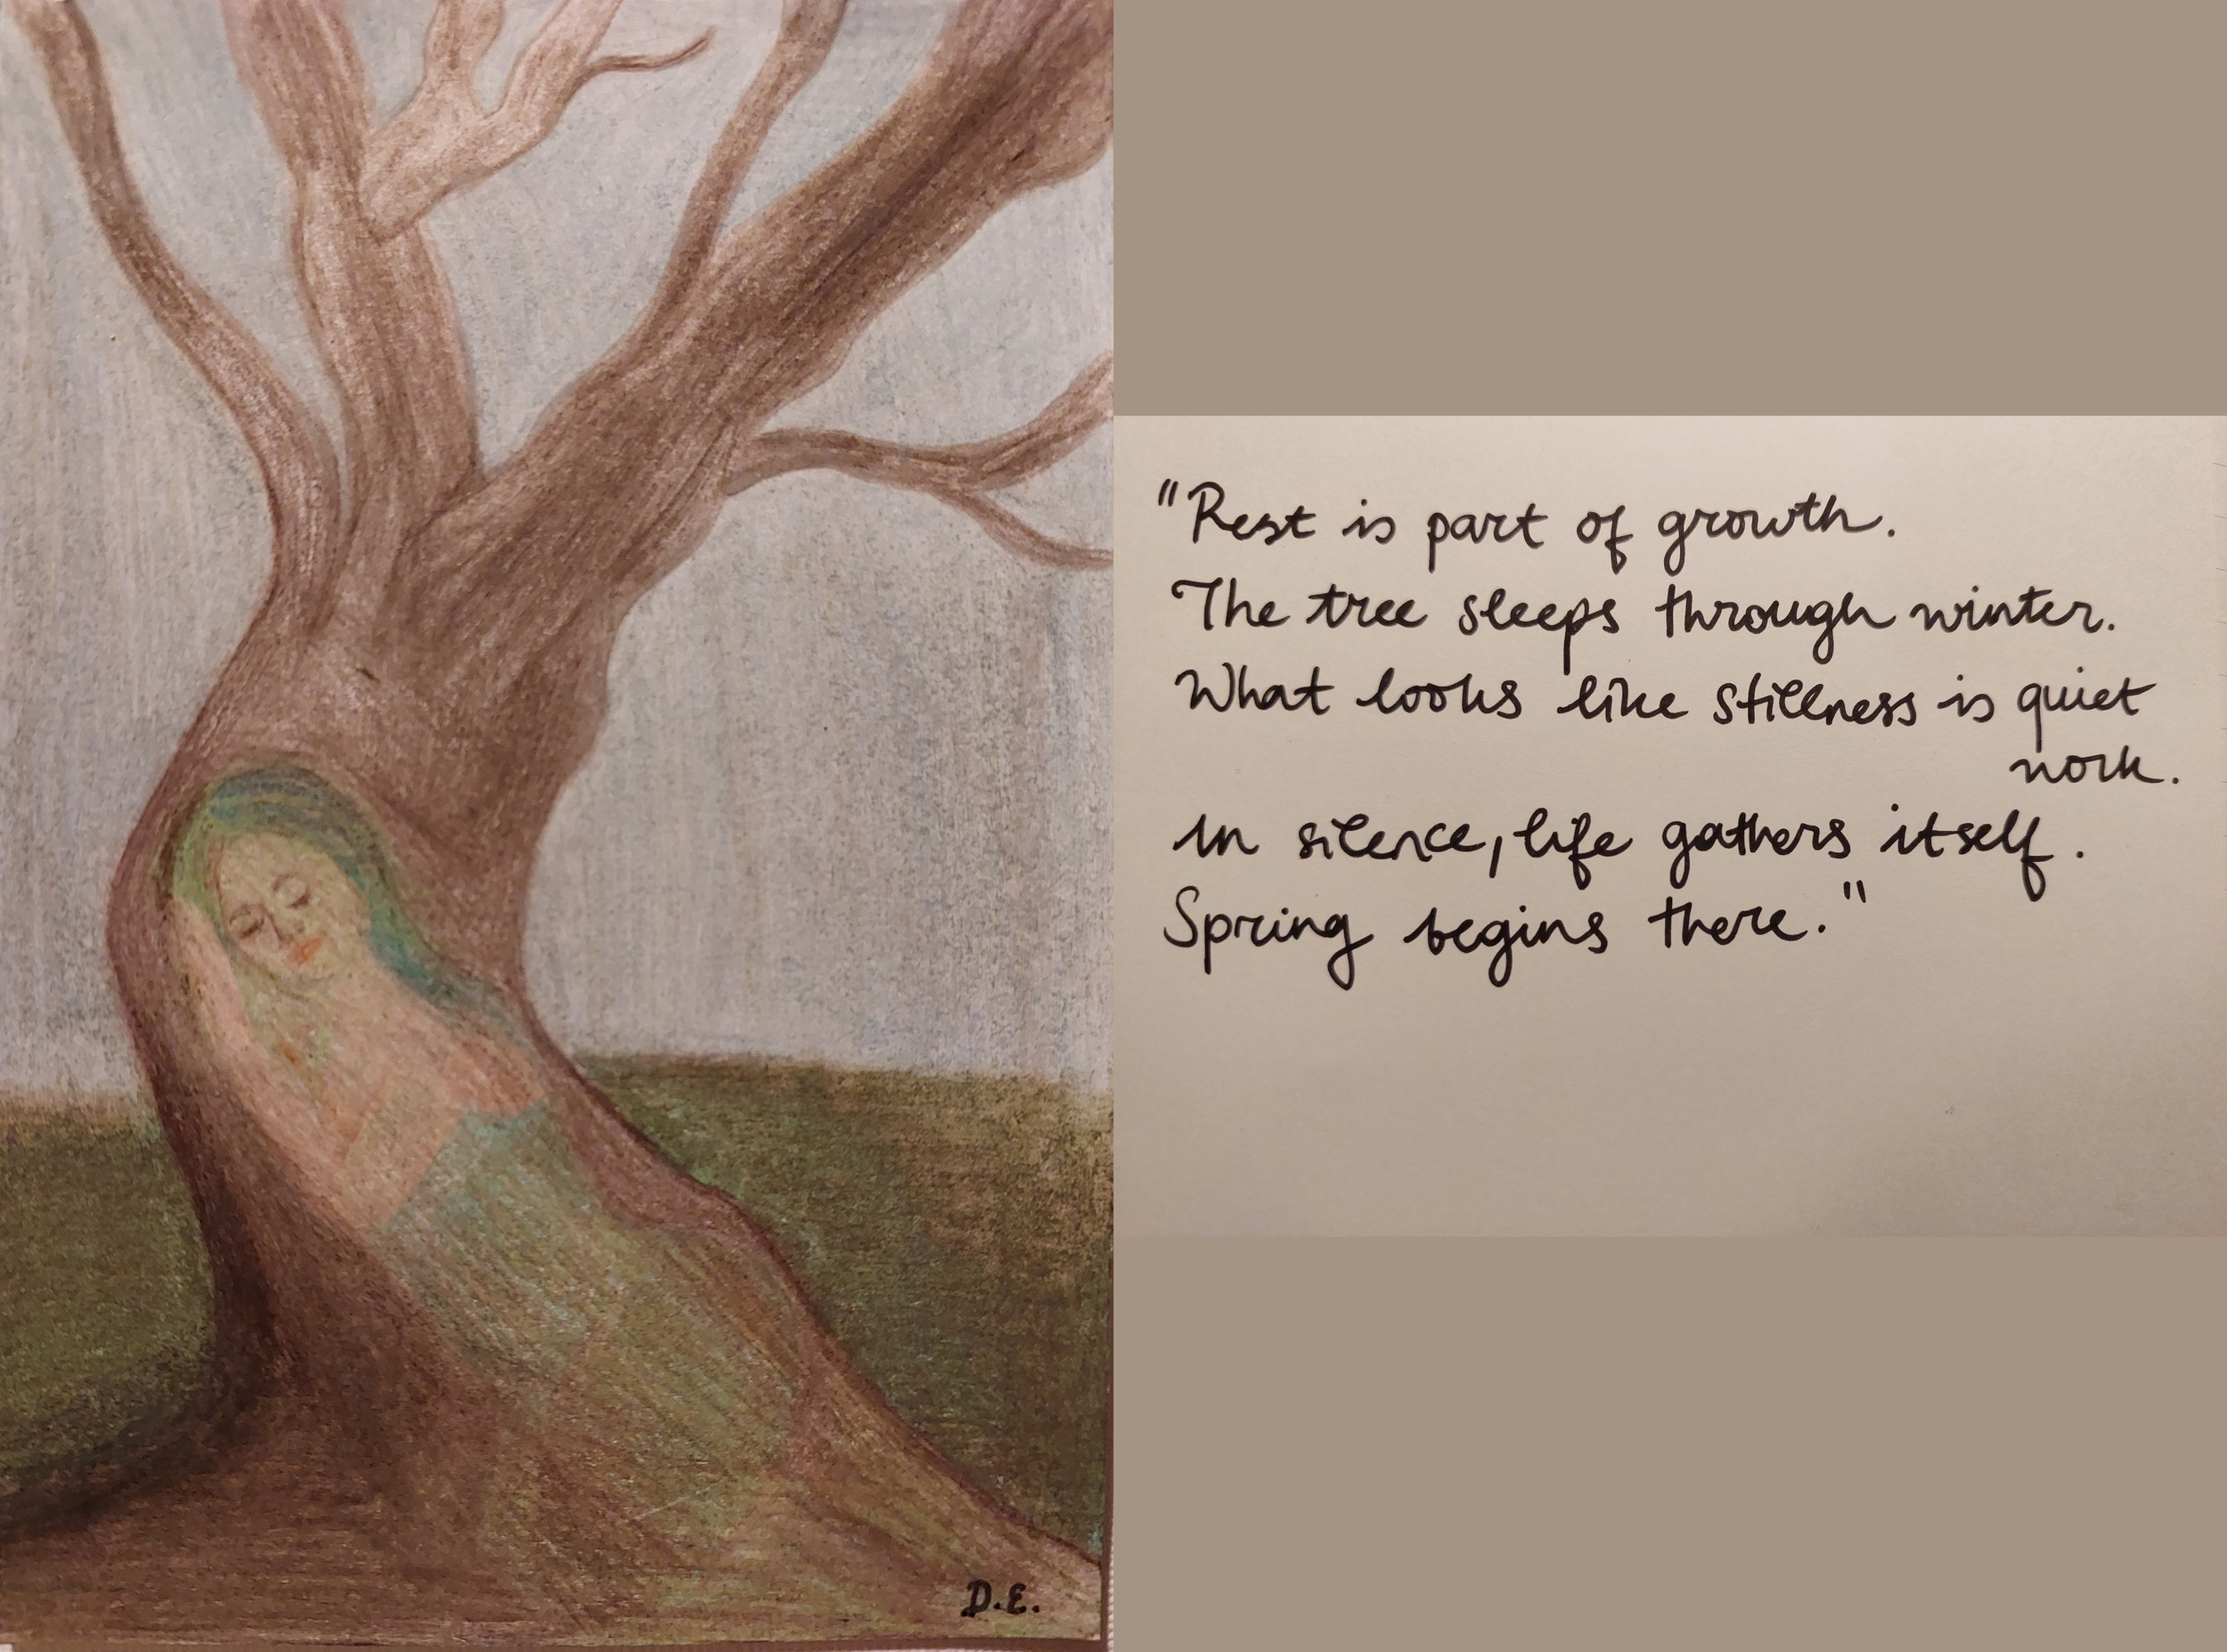 "Rest is part of growth.
The tree sleeps through winter.
What looks like stillness is quiet
work.
In silence, life gathers itself.
Spring begins there."
D.E.